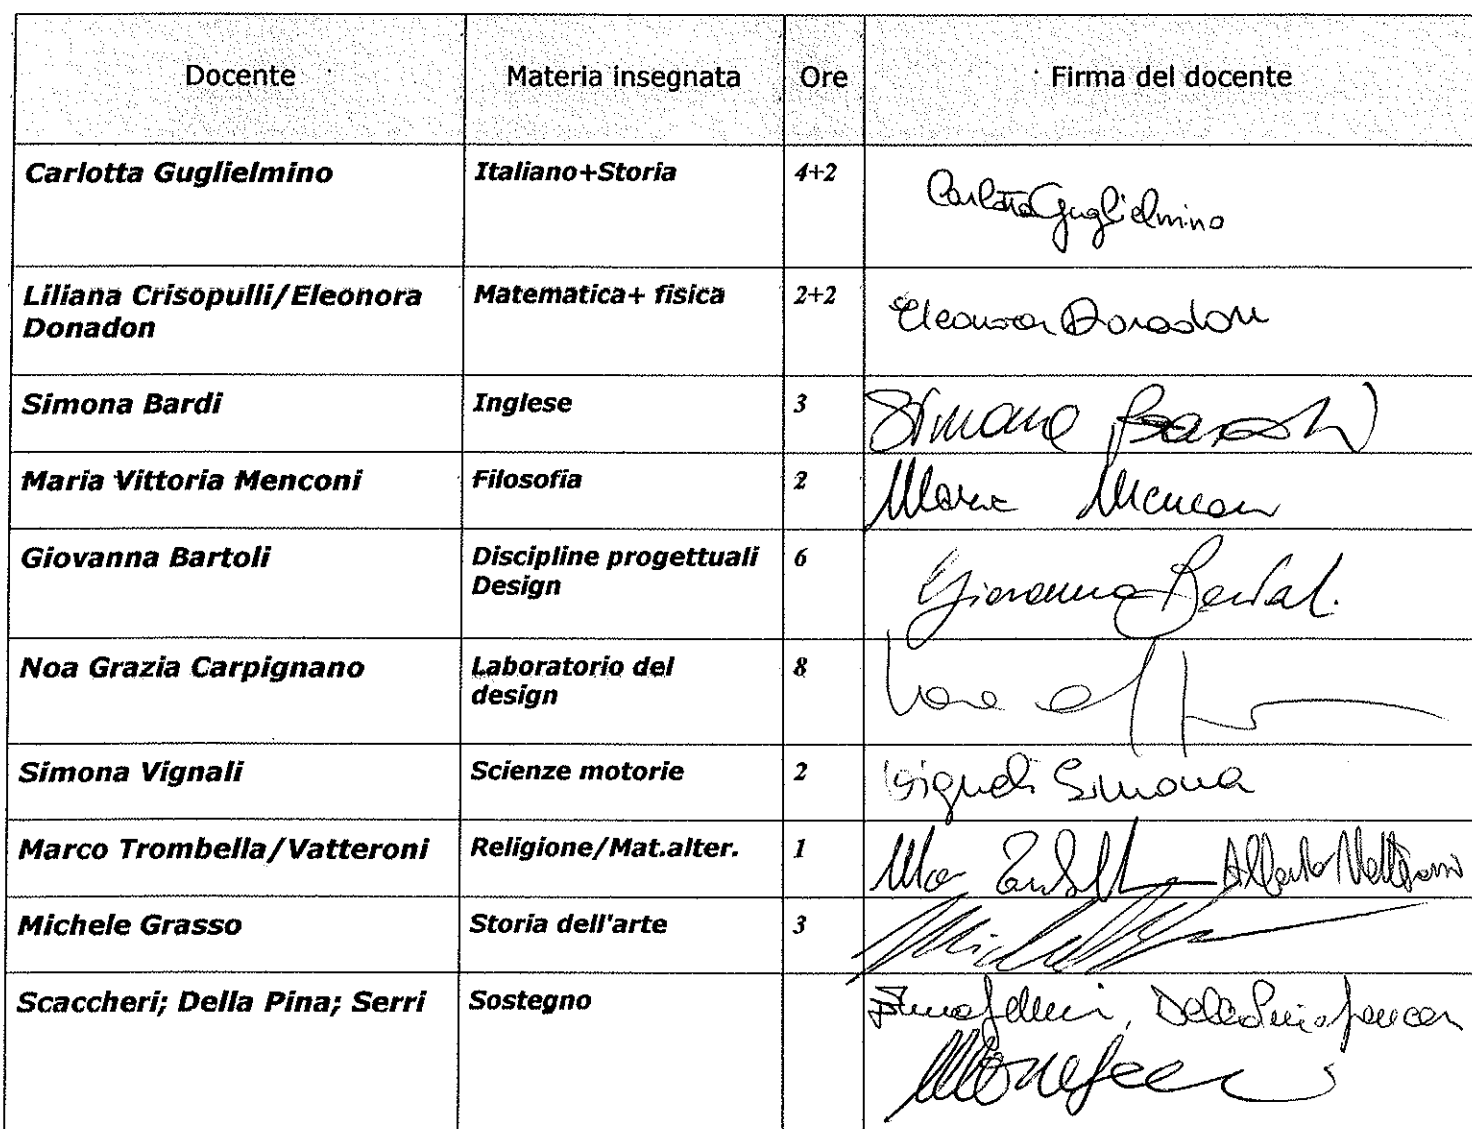 Docente Materia insegnata Ore Firma del docente
Carlotta Guglielmino Italiano+Storia 4+2 Carlotta Guglielmino
Liliana Crisopulli/Eleonora Matematica+ fisica 2+2 Eleonora Donadon
Donadon
Simona Bardi Inglese 3 Simona Bardi
Maria Vittoria Menconi Filosofia 2 Maria Menconi
Giovanna Bartoli Discipline progettuali 6 Giovanna Bartoli
Design
Noa Grazia Carpignano Laboratorio del 8
design
Simona Vignali Scienze motorie 2 Vignali Simona
Marco Trombella/Vatteroni Religione/Mat.alter. 1 Alberto Vatteroni
Michele Grasso Storia dell'arte 3
Scaccheri; Della Pina; Serri Sostegno